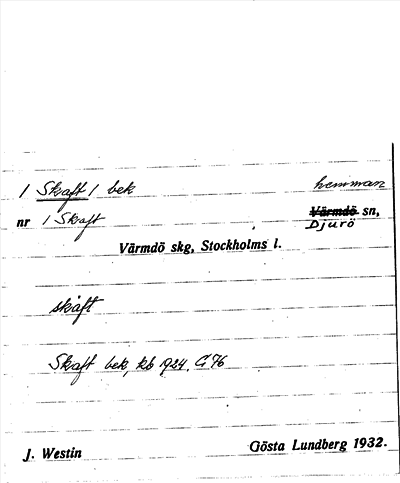 / Skaft / bek hemman
nr / Skaft Värmdö sn,
Djurö
Värmdö skg, Stockholms l.
skaft
Skaft bek, kb 1924. G 76
J. Westin Gösta Lundberg 1932.